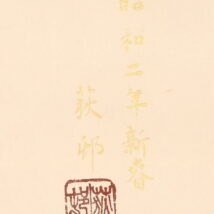 昭和二年新春
荻邨